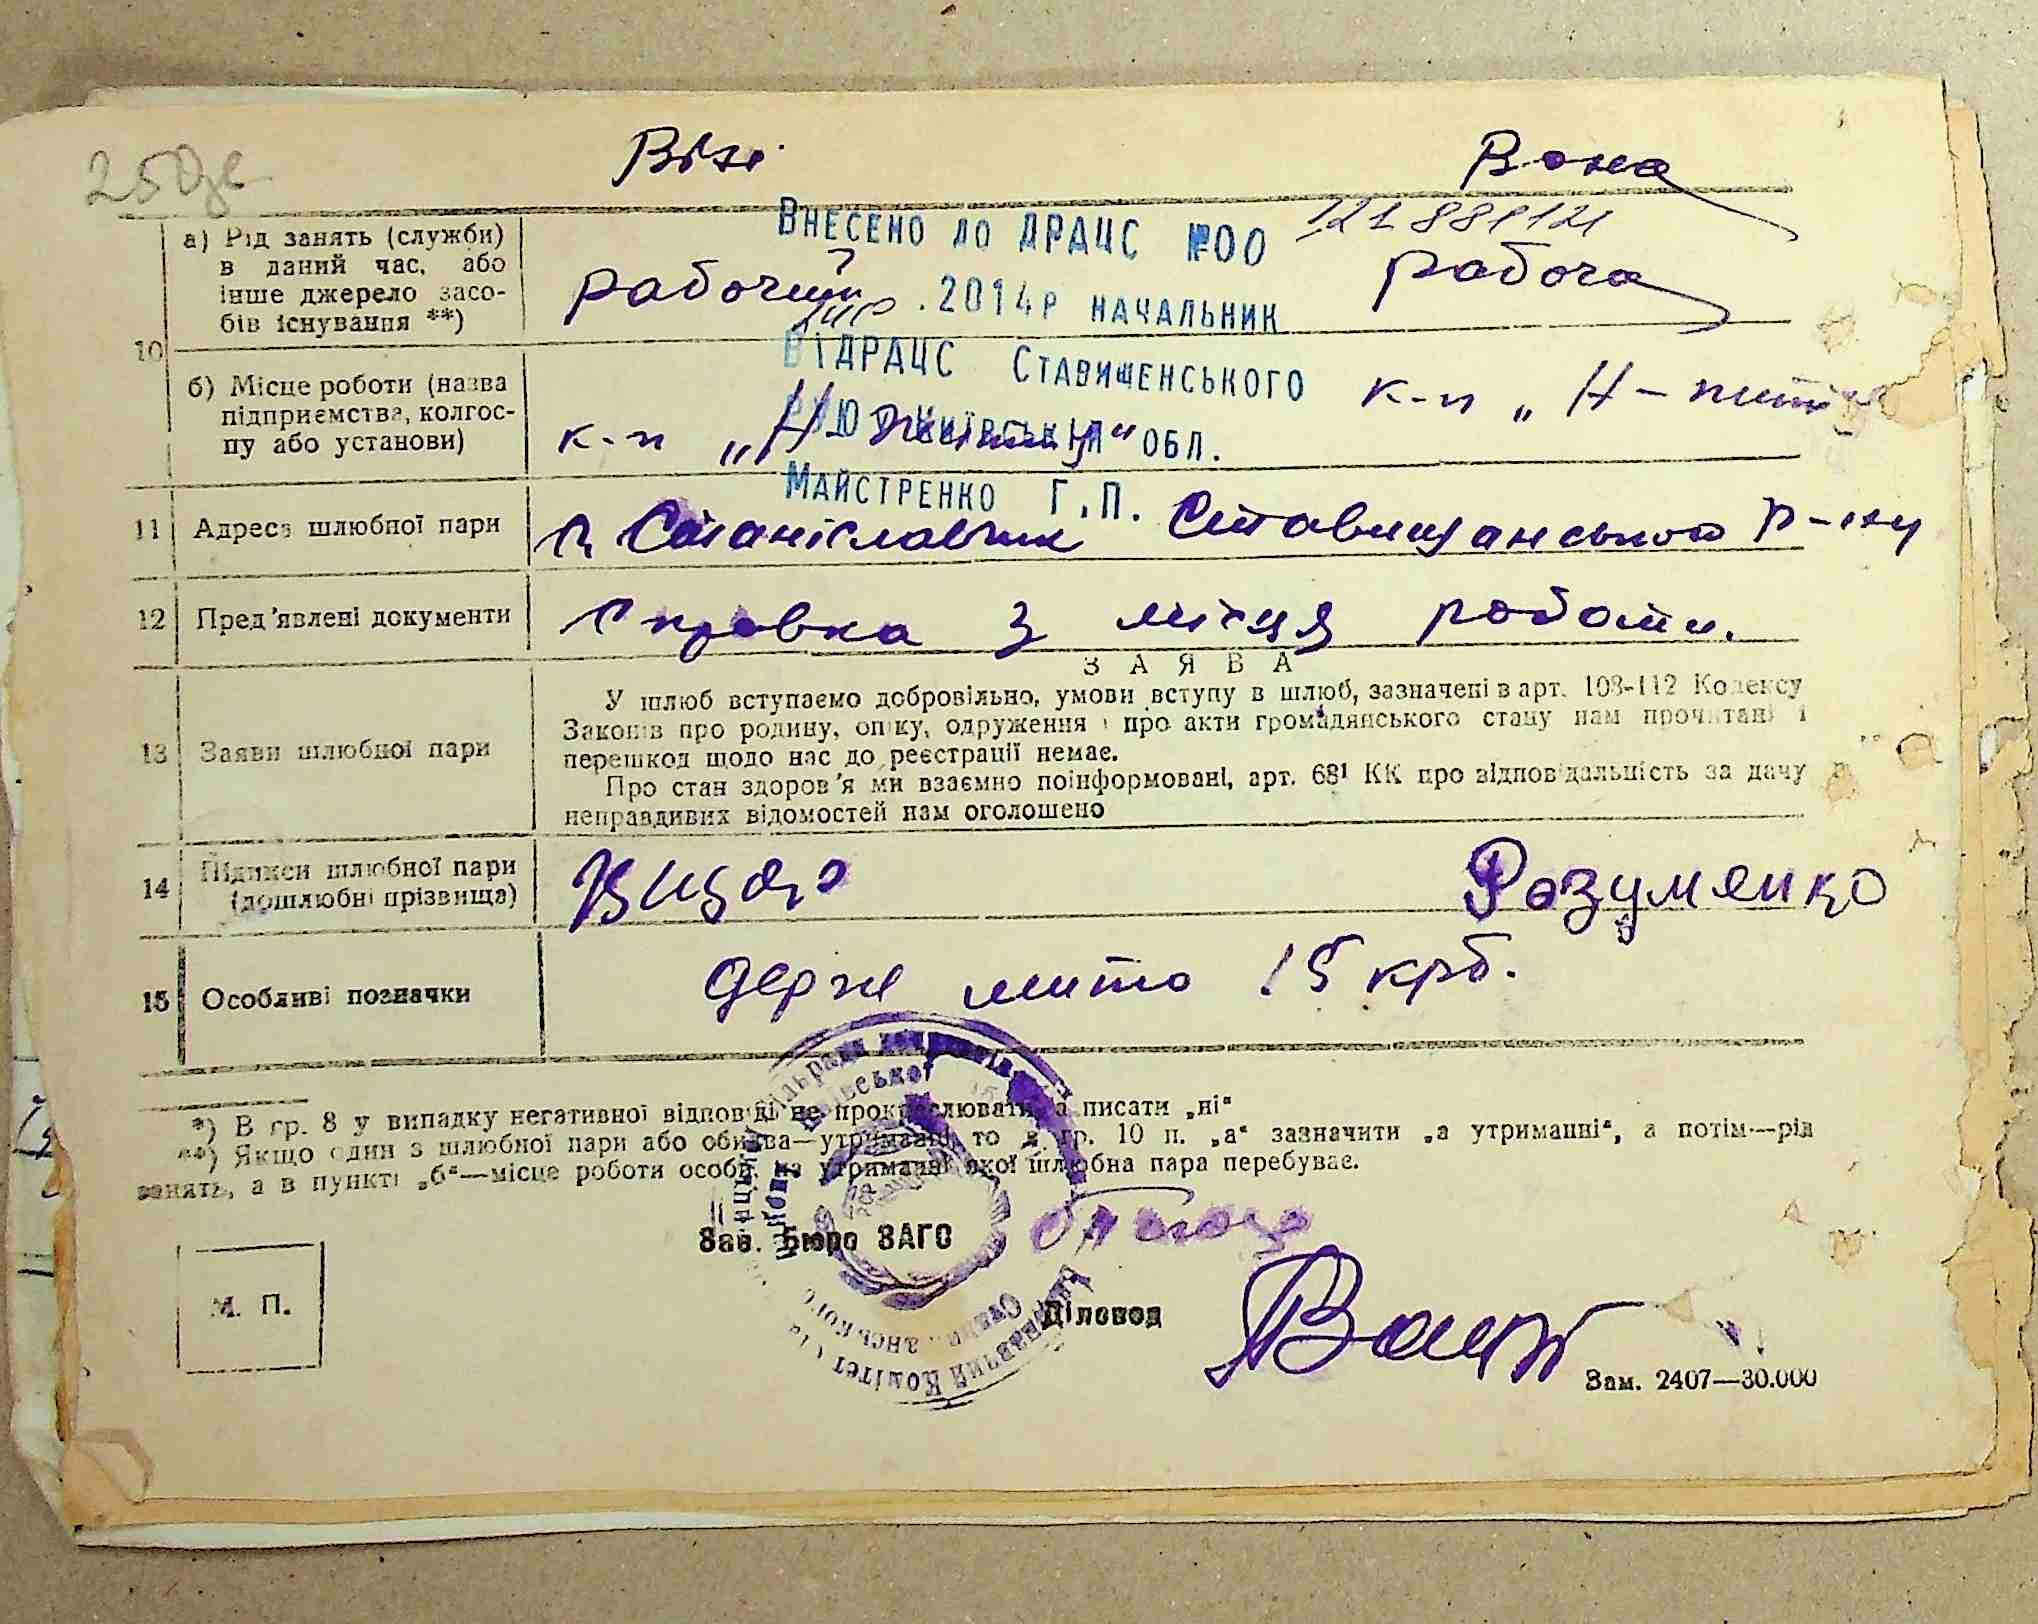 250зв
Він Вона
а) Рід занять (служби)
в даний час, або
інше джерело засо-
бів існування **)
рабочий рабоча
Внесено до ДРАЦС №00 121881121
.2014р начальник
ВіДРАЦС Ставищенського
РУЮ Київської обл.
Майстренко Г.П.
10
б) Місце роботи (назва
підприємства, колгос-
пу або установи)
к-п „Н-життя“ к-п „Н-життя
11 Адреса шлюбної пари
с Станіславчик Ставищанського р-ну
12 Пред'явлені документи
Справка з місця роботи.
13 Заяви шлюбної пари
ЗАЯВА
У шлюб вступаємо добровільно, умови вступу в шлюб, зазначені в арт. 108-112 Кодексу
Законів про родину, опіку, одруження і про акти громадянського стану нам прочитані і
перешкод щодо нас до реєстрації немає.
Про стан здоров'я ми взаємно поінформовані, арт. 68¹ КК про відповідальність за дачу
неправдивих відомостей нам оголошено
14 Підписи шлюбної пари
(дошлюбні прізвища)
Розуменко
15 Особливі позначки
держ мито 15 крб.
*) В гр. 8 у випадку негативної відповіді не прокреслювати, а писати „ні“
**) Якщо один з шлюбної пари або обидва—утриманці, то в гр. 10 п. „а“ зазначити „а утриманні“, а потім—рід
занять, а в пункті „б“—місце роботи особи, на утриманні якої шлюбна пара перебуває.
Зав. Бюро ЗАГС
М. П.
Діловод
Зам. 2407—30.000